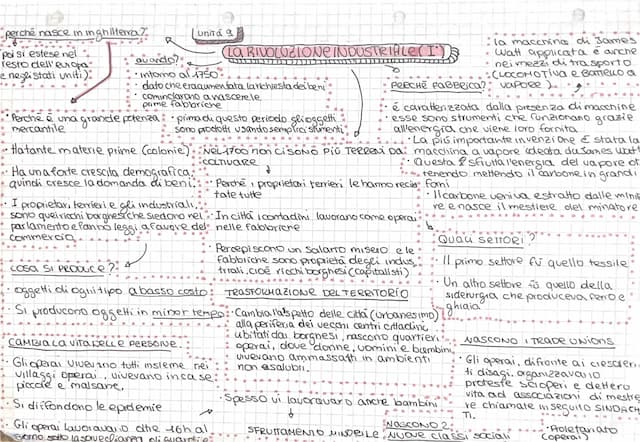 Unità 9
LA RIVOLUZIONE INDUSTRIALE (I°)
perché nasce in inghilterra?
poi si estese nel
resto dell'europa
e negli stati uniti).
• Perché è una grande potenza
mercantile
• Ha tante materie prime (colonie).
• Ha una forte crescita demografica,
quindi cresce la domanda di beni.
• I proprietari terrieri e gli industriali,
sono quei ricchi borghesi che siedono nel
parlamento e fanno leggi a favore del
commercio.
COSA SI PRODUCE?
• oggetti di ogni tipo a basso costo
Si producono oggetti in minor tempo
CAMBIA LA VITA DELLE PERSONE.
• Gli operai vivevano tutti insieme nei
villaggi operai, vivevano in case
piccole e malsane,
Si diffondono le epidemie
Gli operai lavoravano oltre 16h al
giorno sotto la sorveglianza di guardie
quando?
• intorno al 1750
dato che era aumentata la richiesta dei beni
• cominciarono a nascere le
prime fabbriche
• prima di questo periodo gli oggetti
sono prodotti usando semplici strumenti
NEL 1700 NON CI SONO PIÙ TERRE DA
COLTIVARE
• Perché i proprietari terrieri le hanno recin
tate tutte
• In città i contadini, lavorano come operai
nelle fabbriche
• Percepiscono un salario misero e le
fabbriche sono proprietà degli indus
triali, cioè ricchi borghesi (capitalisti)
TRASFORMAZIONE DEL TERRITORIO
• Cambia l'aspetto delle città (urbanesimo)
alla periferia dei vecchi centri cittadini,
abitati dai borghesi, nascono quartieri
operai, dove donne, uomini e bambini,
vivevano ammassati in ambienti
non salubri.
• Spesso vi lavoravano anche bambini
SFRUTTAMENTO MINORILE
NASCONO 2
NUOVE CLASSI sociali
la macchina di James
Watt applicata è anche
nei mezzi di trasporto
(LOCOMOTIVA e BATTELLO a
VAPORE)
PERCHÉ FABBRICA?
è caratterizzata dalla presenza di macchine
esse sono strumenti che funzionano grazie
all'energia che viene loro fornita
• La più importante invenzione è stata la
macchina a vapore ideata da James Watt
• Questa sfrutta l'energia del vapore ot
tenendo mettendo il carbone in grandi
forni
• Il carbone veniva estratto dalle minie
re e nasce il mestiere del minatore
QUALI SETTORI?
Il primo settore fu quello tessile
• Un altro settore fu quello della
siderurgia che produceva ferro e
ghisa
NASCONO I TRADE UNIONS
• Gli operai, di fronte ai crescen
ti disagi, organizzavano
proteste scioperi e dettero
vita ad associazioni di mestie
re chiamate in seguito SINDACA
TI.
• Proletariato
(operai)